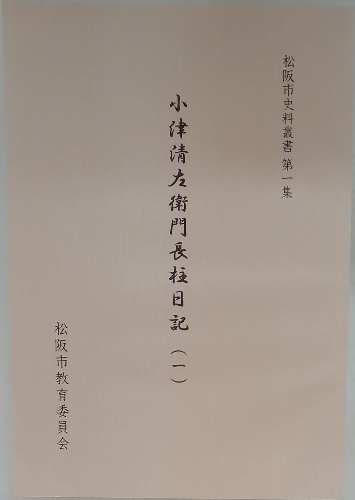 松阪市史料叢書 第一集
小津清左衛門長柱日記(一)
松阪市教育委員会